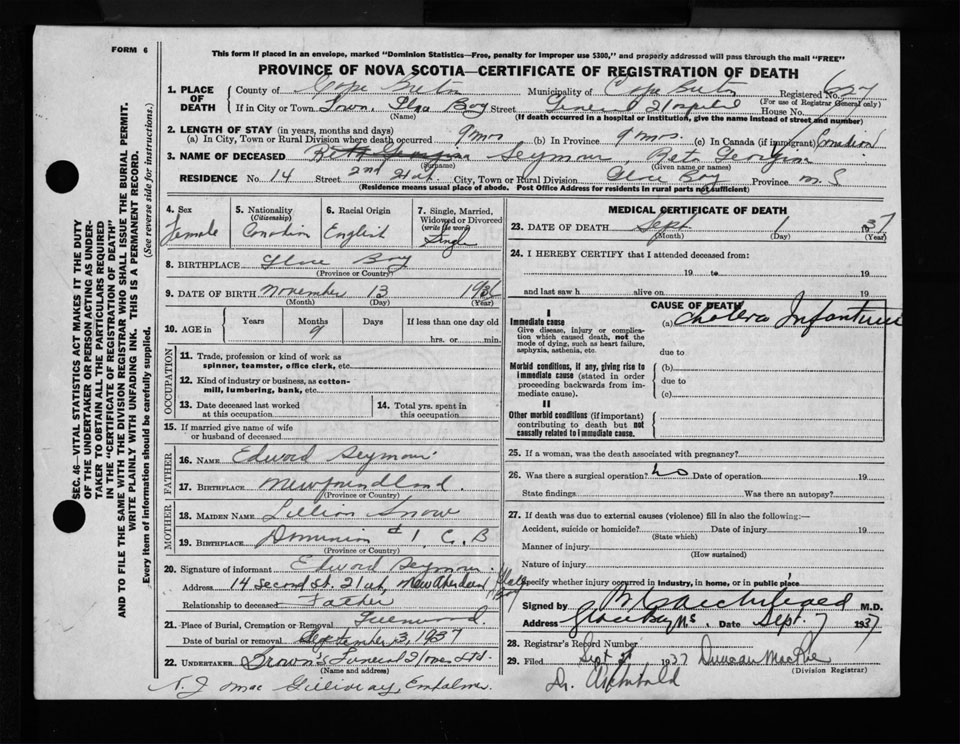 FORM 6
This form if placed in an envelope, marked "Dominion Statistics—Free, penalty for improper use $300," and properly addressed will pass through the mail "FREE"
PROVINCE OF NOVA SCOTIA—CERTIFICATE OF REGISTRATION OF DEATH
1. PLACE OF DEATH County of Cape Breton Municipality of Cape Breton Registered No. 627
(For use of Registrar General only)
If in City or Town Town, Glace Bay Street General Hospital House No.
(Name) (If death occurred in a hospital or institution, give the name instead of street and number)
2. LENGTH OF STAY (in years, months and days)
(a) In City, Town or Rural Division where death occurred 9 mos (b) In Province 9 mos. (c) In Canada (if immigrant) Canadian
3. NAME OF DECEASED Seymour, Beta Georgina
(Surname) (Given name or names)
RESIDENCE No. 14 Street 2nd St. City, Town or Rural Division Glace Bay Province N.S
(Residence means usual place of abode. Post Office Address for residents in rural parts not sufficient)
4. Sex Female
5. Nationality (Citizenship) Canadian
6. Racial Origin English
7. Single, Married, Widowed or Divorced (write the word) Single
8. BIRTHPLACE Glace Bay
(Province or Country)
9. DATE OF BIRTH November 13 1936
(Month) (Day) (Year)
10. AGE in Years Months 9 Days If less than one day old hrs. or min.
OCCUPATION
11. Trade, profession or kind of work as spinner, teamster, office clerk, etc.
12. Kind of industry or business, as cotton-mill, lumbering, bank, etc.
13. Date deceased last worked at this occupation
14. Total yrs. spent in this occupation
15. If married give name of wife or husband of deceased
FATHER
16. NAME Edward Seymour
17. BIRTHPLACE Newfoundland
(Province or Country)
MOTHER
18. MAIDEN NAME Lillian Snow
19. BIRTHPLACE Dominion #1, C.B
(Province or Country)
20. Signature of informant Edward Seymour
Address 14 Second St. New Aberdeen
Relationship to deceased Father
21. Place of Burial, Cremation or Removal Greenwood
Date of burial or removal September 3, 1937
22. UNDERTAKER Brown's Funeral Home Ltd
(Name and address)
N. J Mac Gillivray, Embalmer
MEDICAL CERTIFICATE OF DEATH
23. DATE OF DEATH Sept 1 1937
(Month) (Day) (Year)
24. I HEREBY CERTIFY that I attended deceased from:
19 to 19
and last saw h alive on 19
CAUSE OF DEATH
I
Immediate cause (a) Cholera Infantum
Give disease, injury or complication which caused death, not the mode of dying, such as heart failure, asphyxia, asthenia, etc.
due to
Morbid conditions, if any, giving rise to immediate cause (stated in order proceeding backwards from immediate cause).
(b)
due to
(c)
II
Other morbid conditions (if important) contributing to death but not causally related to immediate cause.
25. If a woman, was the death associated with pregnancy?
26. Was there a surgical operation? no Date of operation 19
State findings Was there an autopsy?
27. If death was due to external causes (violence) fill in also the following:—
Accident, suicide or homicide? Date of injury 19
(State which)
Manner of injury
(How sustained)
Nature of injury
Specify whether injury occurred in industry, in home, or in public place
Signed by Archibald M.D.
Address Glace Bay NS. Date Sept. 7 1937
28. Registrar's Record Number
29. Filed Sept 1937 Duncan MacRae
(Division Registrar)
Dr. Archibald
SEC. 46—VITAL STATISTICS ACT MAKES IT THE DUTY
OF THE UNDERTAKER OR PERSON ACTING AS UNDER-
TAKER TO OBTAIN ALL THE PARTICULARS REQUIRED
IN THE "CERTIFICATE OF REGISTRATION OF DEATH"
AND TO FILE THE SAME WITH THE DIVISION REGISTRAR WHO SHALL ISSUE THE BURIAL PERMIT.
WRITE PLAINLY WITH UNFADING INK. THIS IS A PERMANENT RECORD.
Every item of information should be carefully supplied. (See reverse side for instructions.)